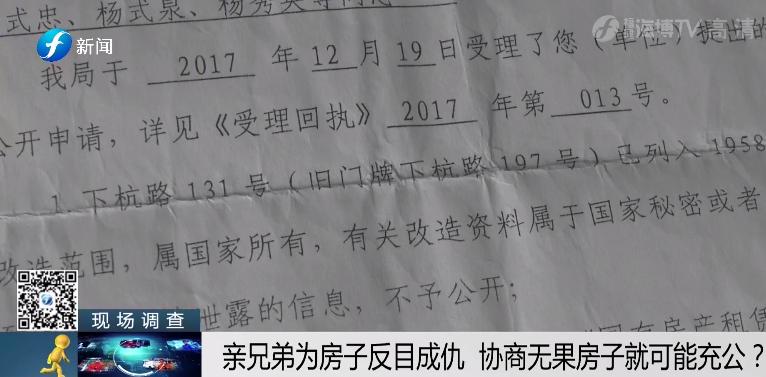 式忠、杨式泉、杨秀英等同志
新闻
海博TV 高清
我局于 2017 年 12 月 19 日受理了您（单位）提出的
公开申请，详见《受理回执》 2017 年第 013 号。
1. 下杭路 131 号（旧门牌下杭路 197 号）已列入 1958
改造范围，属国家所有，有关改造资料属于国家秘密或者
泄露的信息，不予公开；
国有房产租赁
现场调查
亲兄弟为房子反目成仇 协商无果房子就可能充公？